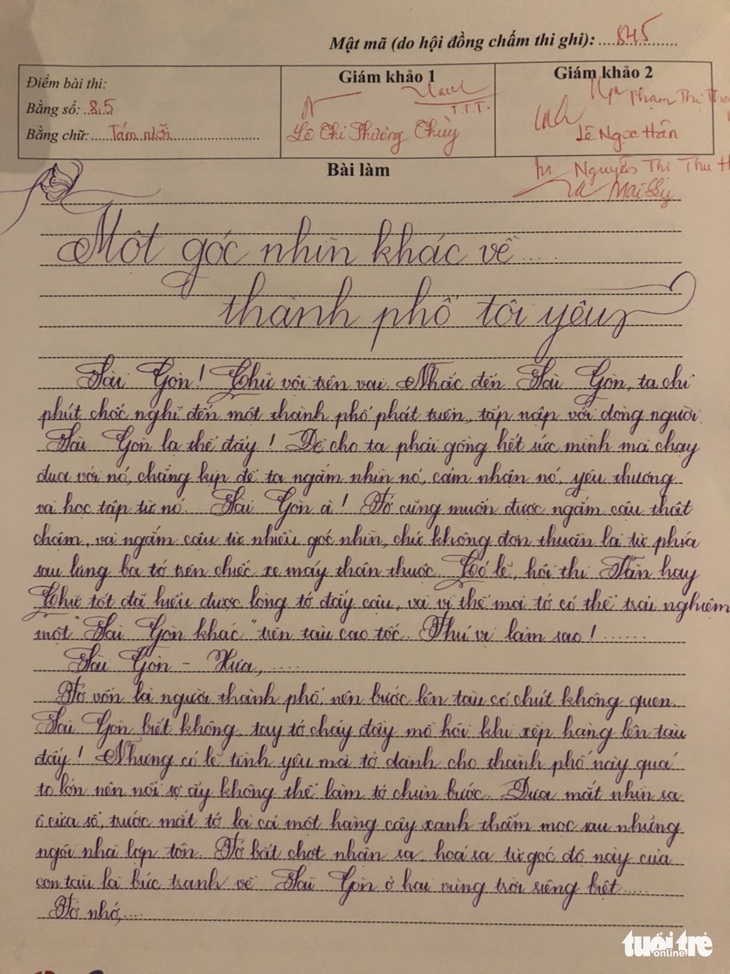 Mật mã (do hội đồng chấm thi ghi): 845
Điểm bài thi:
Bằng số: 8.5
Bằng chữ: Tám rưỡi
Giám khảo 1
T.T.T.
Lê Thị Phương Thùy
Giám khảo 2
Phạm Thị
Lê Ngọc Hân
Nguyễn Thị Thu H
Mai Ly
Bài làm
Một góc nhìn khác về ....
thành phố tôi yêu
Sài Gòn! Chữ vội trên vai. Nhắc đến Sài Gòn, ta chỉ
phút chốc nghĩ đến một thành phố phát triển, tấp nập với dòng người.
Sài Gòn là thế đấy! Để cho ta phải gồng hết sức mình mà chạy
đua với nó, chẳng kịp để ta ngắm nhìn nó, cảm nhận nó, yêu thương
và học tập từ nó. Sài Gòn à! Tớ cũng muốn được ngắm cậu thật
chậm, và ngắm cậu từ nhiều góc nhìn, chứ không đơn thuần là từ phía
sau lưng ba tớ trên chiếc xe máy thân thuộc. Có lẽ, hội thi Văn hay
Chữ tốt đã hiểu được lòng tớ đấy cậu, và vì thế mà tớ có thể trải nghiệm
một "Sài Gòn khác" trên tàu cao tốc. Thú vị làm sao!......
Sài Gòn - Xưa,....
Tớ vốn là người thành phố, nên bước lên tàu có chút không quen.
Sài Gòn biết không, tay tớ chảy đầy mồ hôi khi xếp hàng lên tàu
đấy! Nhưng có lẽ tình yêu mà tớ dành cho thành phố này quá
to lớn nên nỗi sợ ấy không thể làm tớ chùn bước. Đưa mắt nhìn ra
ô cửa sổ, trước mắt tớ là cả một hàng cây xanh thẳm mọc sau những
ngôi nhà lợp tôn. Tớ bất chợt nhận ra, hoá ra từ góc độ này của
con tàu là bức tranh về Sài Gòn ở hai vùng trời riêng biệt....
Tớ nhớ,....
tuổi trẻ
online